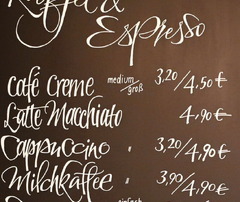 Kaffee &
Espresso
Café Creme medium/groß 3,20/4,50€
Latte Macchiato 4,90€
Cappuccino " 3,20/4,90€
Milchkaffee " 3,90/4,90€
einfach